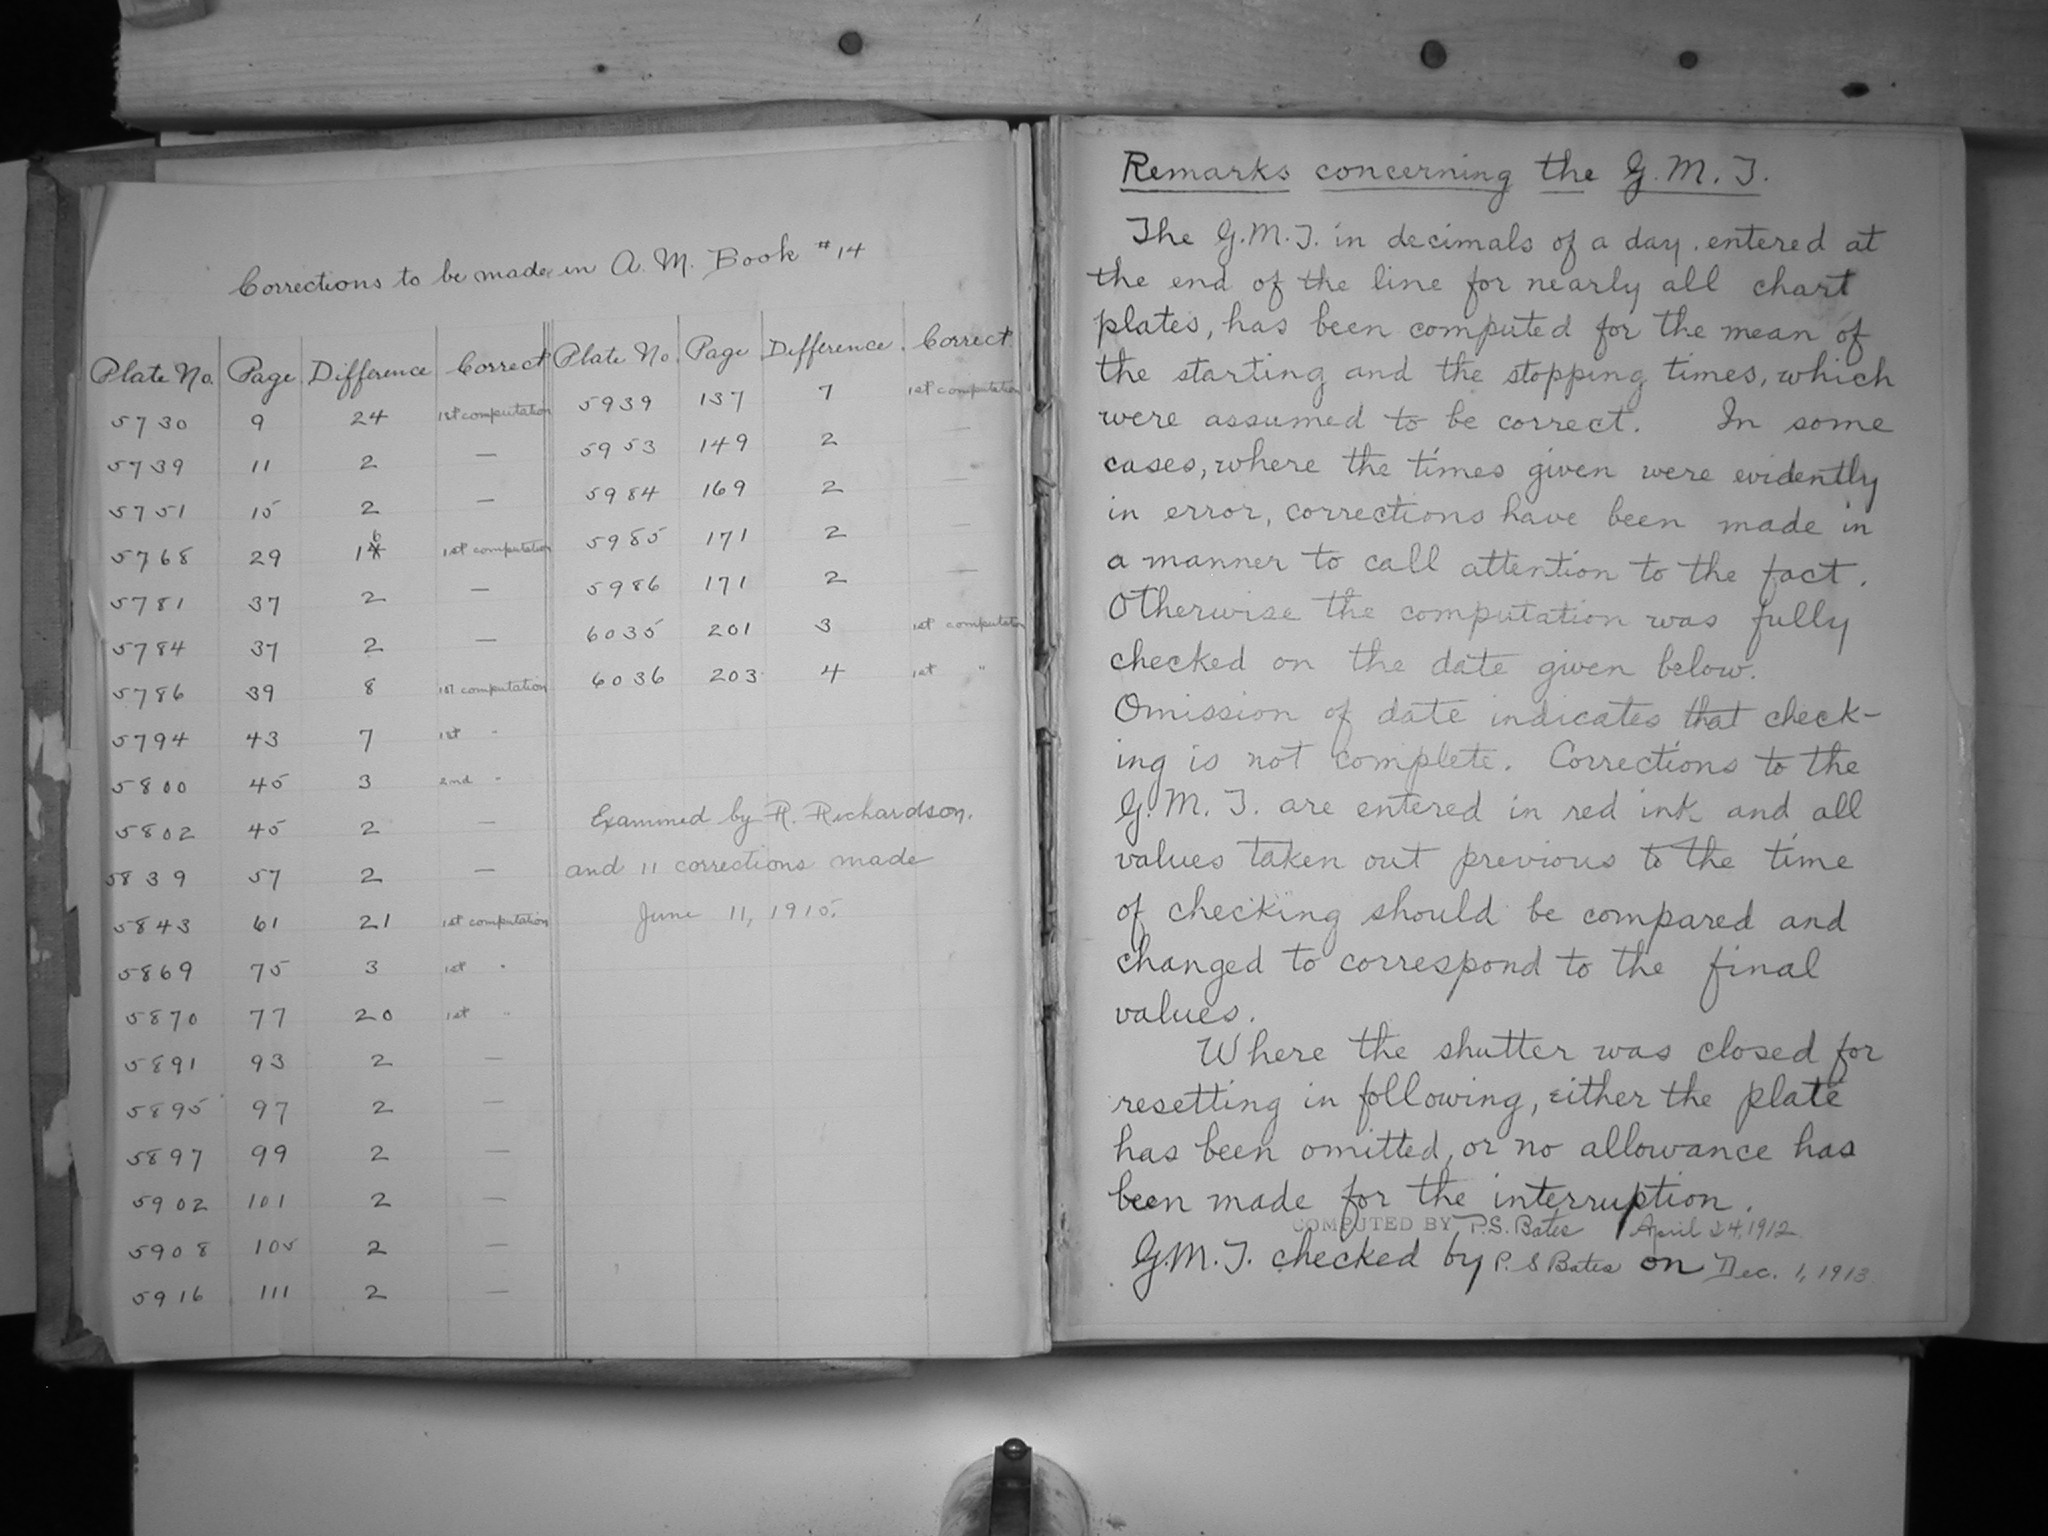 Corrections to be made in A. M. Book #14
Plate No. Page Difference Correct
5730 9 24 1st computation
5739 11 2 —
5751 15 2 —
5768 29 16 1st computation
5781 37 2 —
5784 37 2 —
5786 39 8 1st computation
5794 43 7 1st "
5800 45 3 2nd "
5802 45 2 —
5839 57 2 —
5843 61 21 1st computation
5869 75 3 1st "
5870 77 20 1st "
5891 93 2 —
5895 97 2 —
5897 99 2 —
5902 101 2 —
5908 105 2 —
5916 111 2 —
Plate No. Page Difference. Correct
5939 137 7 1st computation
5953 149 2 —
5984 169 2 —
5985 171 2 —
5986 171 2 —
6035 201 3 1st computation
6036 203 4 1st "
Examined by R. Richardson.
and 11 corrections made
June 11, 1915.
Remarks concerning the G.M.T.
The G.M.T. in decimals of a day, entered at
the end of the line for nearly all chart
plates, has been computed for the mean of
the starting and the stopping times, which
were assumed to be correct. In some
cases, where the times given were evidently
in error, corrections have been made in
a manner to call attention to the fact.
Otherwise the computation was fully
checked on the date given below.
Omission of date indicates that check-
ing is not complete. Corrections to the
G.M.T. are entered in red ink and all
values taken out previous to the time
of checking should be compared and
changed to correspond to the final
values.
Where the shutter was closed for
resetting in following, either the plate
has been omitted, or no allowance has
been made for the interruption.
COMPUTED BY P.S. Bates April 24, 1912.
G.M.T. checked by P. S Bates on Dec. 1, 1913